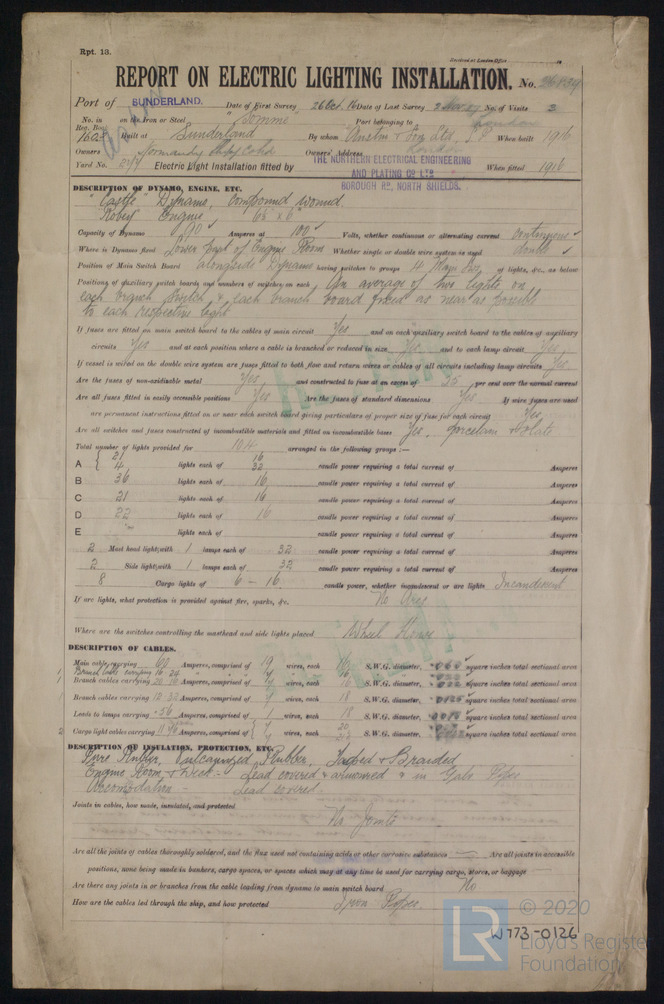 Rpt. 13.
Received at London Office
REPORT ON ELECTRIC LIGHTING INSTALLATION. No.
Port of SUNDERLAND. Date of First Survey 26 Oct. 16 Date of Last Survey No. of Visits 3
No. in Reg. Book on the Iron or Steel "Somme" Port belonging to London
1603 Built at Sunderland By whom Austin & Son Ltd, S.P. When built 1916
Owners Normandy Ship Co Ltd Owners' Address London
Yard No. Electric Light Installation fitted by THE NORTHERN ELECTRICAL ENGINEERING AND PLATING CO LTD BOROUGH RD, NORTH SHIELDS. When fitted 1916
DESCRIPTION OF DYNAMO, ENGINE, ETC.
"Castle" Dynamo, Compound wound.
Robey Engine
Capacity of Dynamo 90 Amperes at 100 Volts, whether continuous or alternating current continuous
Where is Dynamo fixed Lower Part of Engine Room Whether single or double wire system is used double
Position of Main Switch Board alongside Dynamo having switches to groups 4 of lights, &c., as below
Positions of auxiliary switch boards and numbers of switches on each An average of two lights on
each branch switch & each branch board fixed as near as possible
to each respective light
If fuses are fitted on main switch board to the cables of main circuit Yes and on each auxiliary switch board to the cables of auxiliary
circuits Yes and at each position where a cable is branched or reduced in size Yes and to each lamp circuit Yes
If vessel is wired on the double wire system are fuses fitted to both flow and return wires or cables of all circuits including lamp circuits Yes
Are the fuses of non-oxidizable metal Yes and constructed to fuse at an excess of 35 per cent over the normal current
Are all fuses fitted in easily accessible positions Yes Are the fuses of standard dimensions Yes If wire fuses are used
are permanent instructions fitted on or near each switch board giving particulars of proper size of fuse for each circuit Yes
Are all switches and fuses constructed of incombustible materials and fitted on incombustible bases Yes, Porcelain & Slate
Total number of lights provided for 104 arranged in the following groups :—
A { 21 16
4 lights each of 32 candle power requiring a total current of Amperes
B 36 lights each of 16 candle power requiring a total current of Amperes
C 21 lights each of 16 candle power requiring a total current of Amperes
D 22 lights each of 16 candle power requiring a total current of Amperes
E lights each of candle power requiring a total current of Amperes
2 Mast head light with 1 lamps each of 32 candle power requiring a total current of Amperes
2 Side light with 1 lamps each of 32 candle power requiring a total current of Amperes
8 Cargo lights of 6 - 16 candle power, whether incandescent or arc lights Incandescent
If arc lights, what protection is provided against fire, sparks, &c. No Arcs
Where are the switches controlling the masthead and side lights placed Wheel House
DESCRIPTION OF CABLES.
Main cable carrying 60 Amperes, comprised of 19 wires, each 16 S.W.G. diameter, square inches total sectional area
Branch cables carrying 16.24 7 16
1 Branch cables carrying Amperes, comprised of 7 wires, each 18 S.W.G. diameter, square inches total sectional area
Branch cables carrying 12.32 Amperes, comprised of wires, each 18 S.W.G. diameter, square inches total sectional area
Leads to lamps carrying .56 Amperes, comprised of 1 wires, each 18 S.W.G. diameter, square inches total sectional area
2 Cargo light cables carrying Amperes, comprised of wires, each S.W.G. diameter, square inches total sectional area
DESCRIPTION OF INSULATION, PROTECTION, ETC.
Pure Rubber, Vulcanized Rubber, Taped & Braided
Engine Room & Deck - Lead covered & armoured & in Galv Pipes
Accomodation - Lead covered.
Joints in cables, how made, insulated, and protected
No Joints
Are all the joints of cables thoroughly soldered, and the flux used not containing acids or other corrosive substances Are all joints in accessible
positions, none being made in bunkers, cargo spaces, or spaces which may at any time be used for carrying cargo, stores, or baggage
Are there any joints in or branches from the cable leading from dynamo to main switch board No
How are the cables led through the ship, and how protected Iron Pipes.
LR © 2020
W773-0126
Lloyd's Register
Foundation